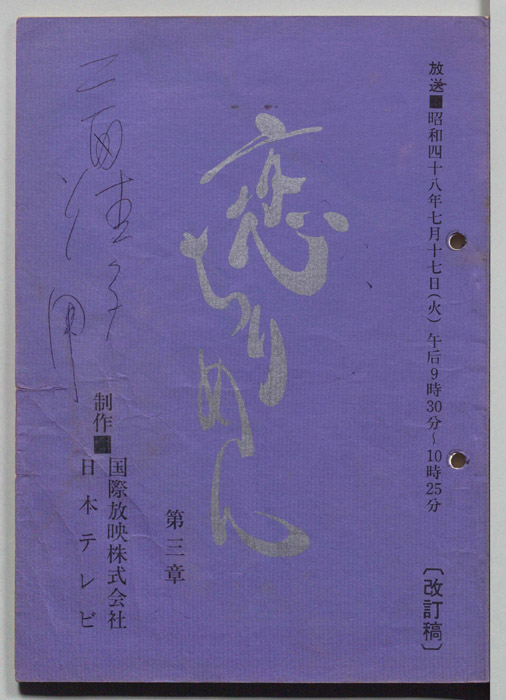 放送■昭和四十八年七月十七日(火)午后9時30分～10時25分
〔改訂稿〕
恋ちりめん
第三章
制作■国際放映株式会社
日本テレビ
三田佳子用